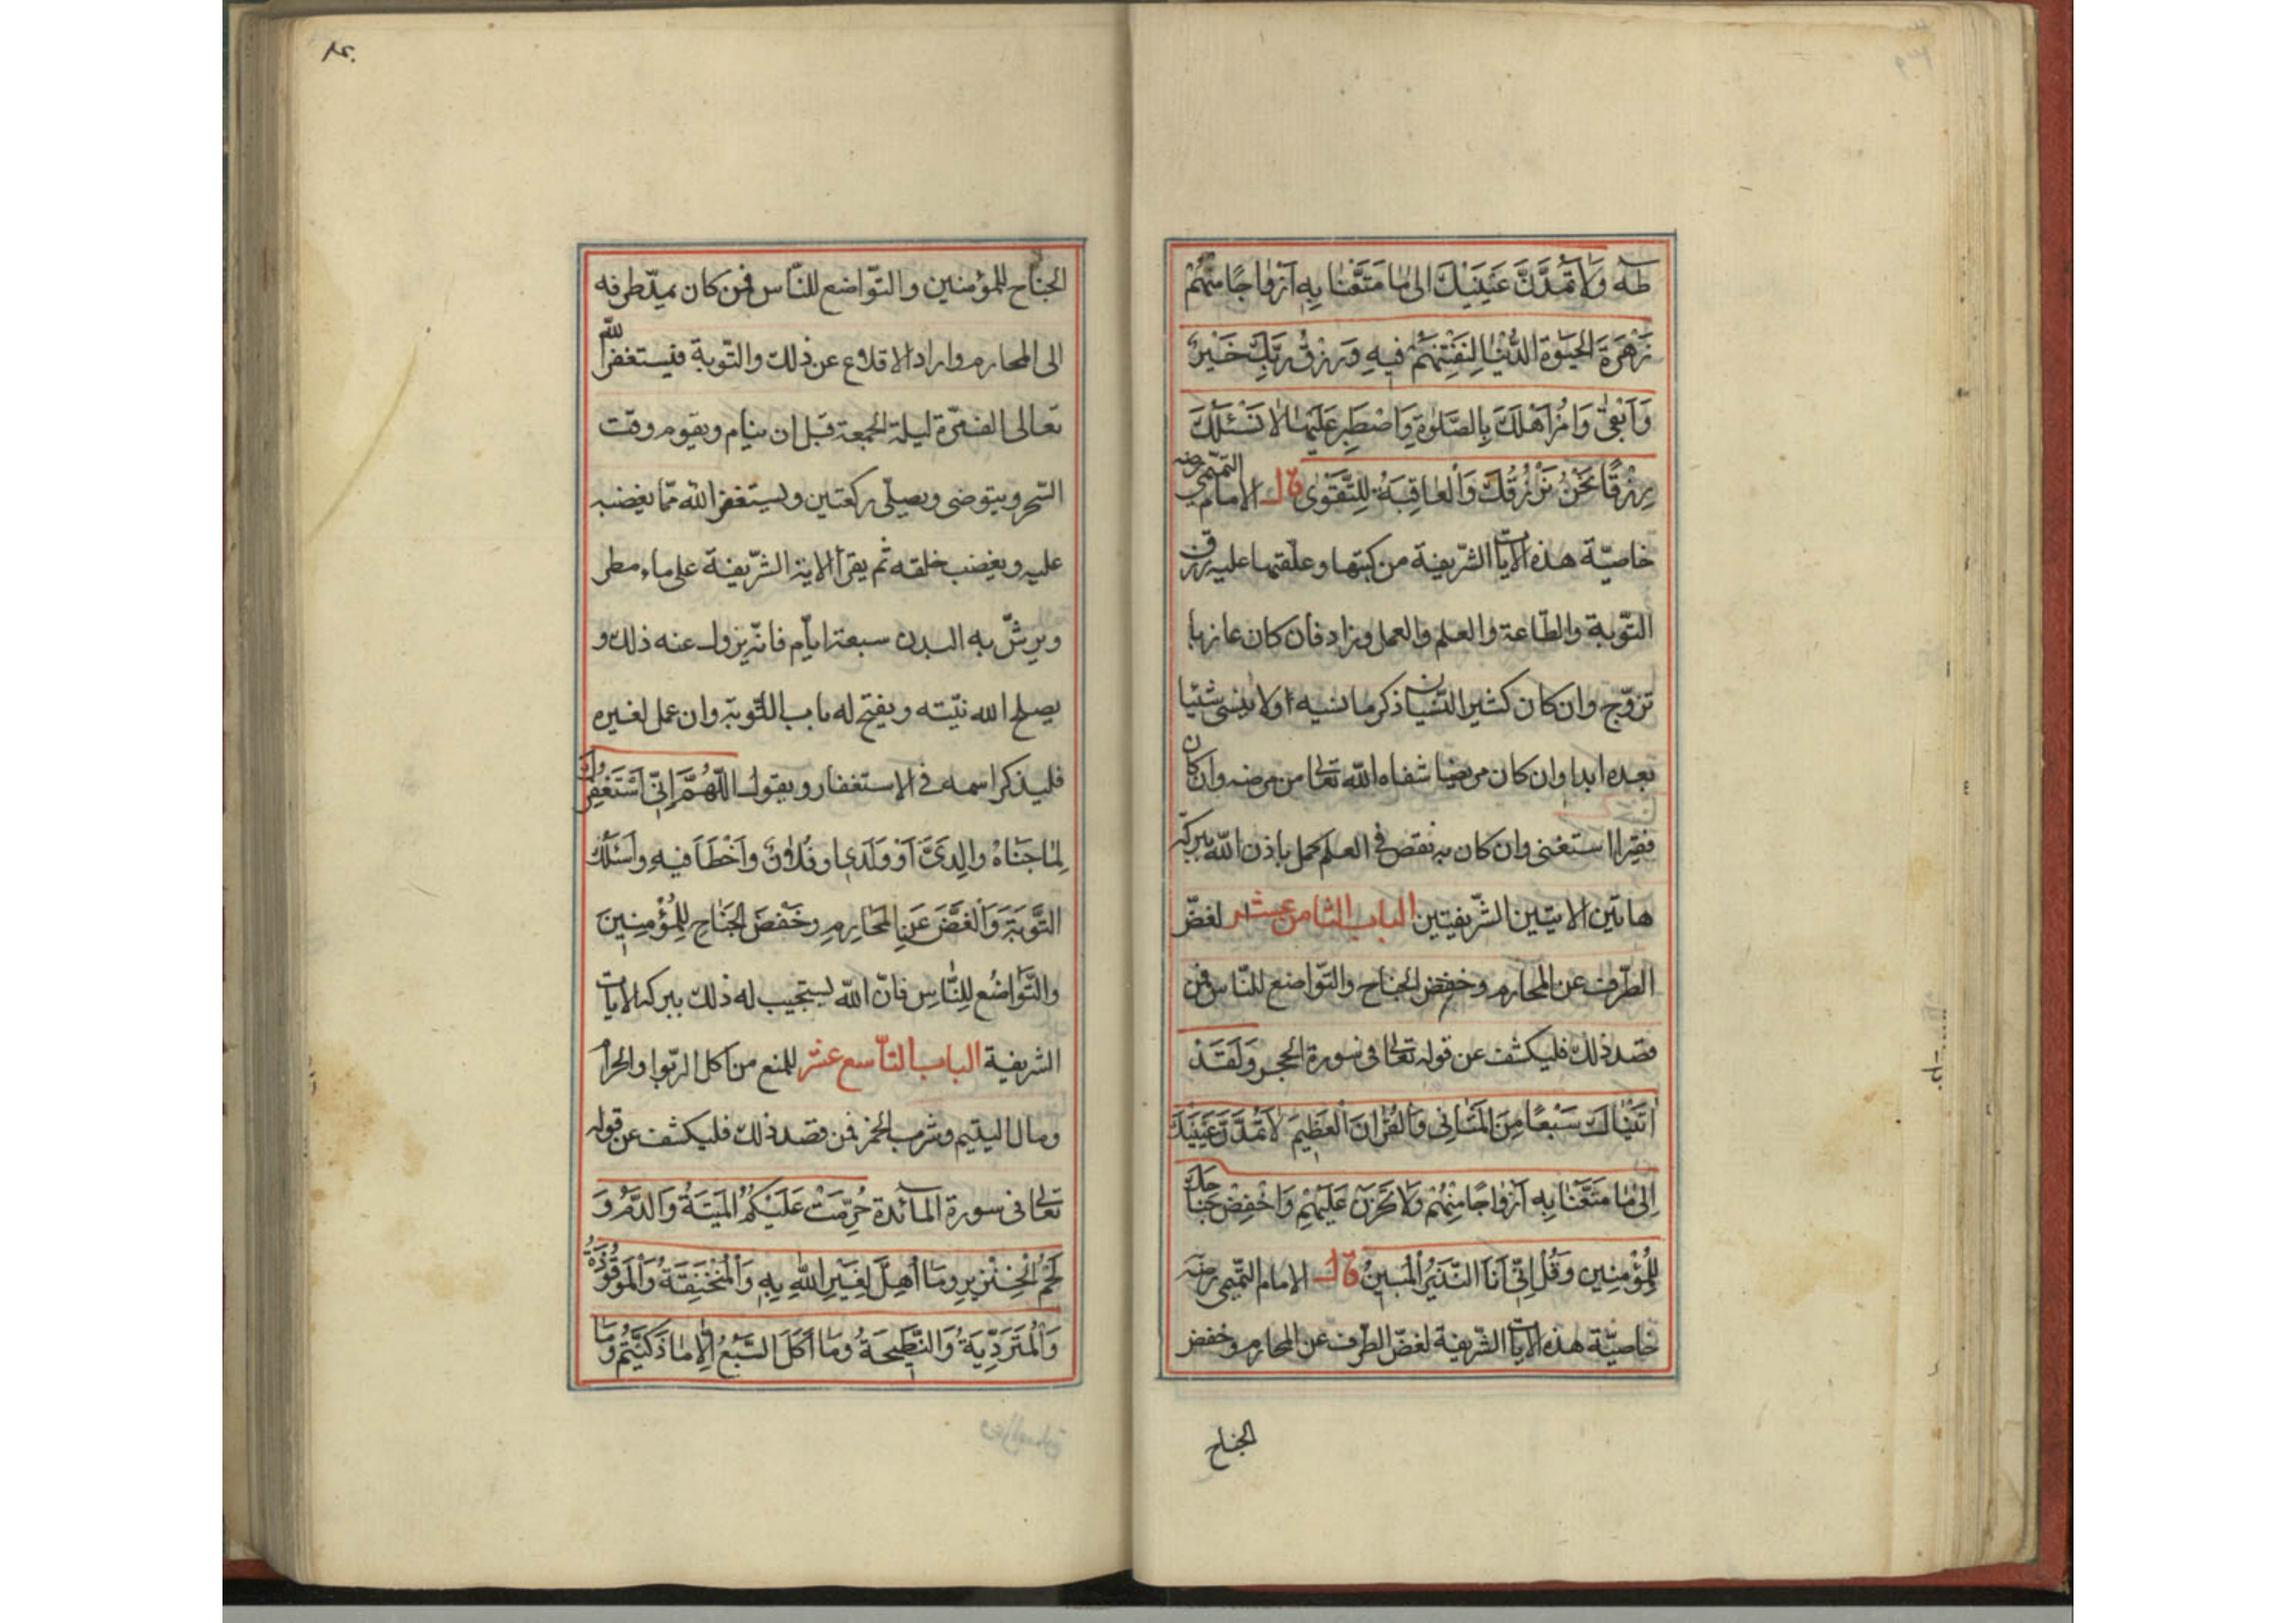 طه وَلَا تَمُدَّنَّ عَيْنَيْكَ اِلٰى مَا مَتَّعْنَا بِهٖ اَزْوَاجًا مِنْهُمْ
زَهْرَةَ الْحَيٰوةِ الدُّنْيَا لِنَفْتِنَهُمْ فِيهِ وَرِزْقُ رَبِّكَ خَيْرٌ
وَاَبْقٰى وَامُرْ اَهْلَكَ بِالصَّلٰوةِ وَاصْطَبِرْ عَلَيْهَا لَا نَسْـَٔلُكَ
رِزْقًا نَحْنُ نَرْزُقُكَ وَالْعَاقِبَةُ لِلتَّقْوٰى قال الامام التميمى رضه
خاصيّة هذه الآيات الشّريفة من كتبها وعلّقها عليه رزق
التّوبة والطّاعة والعلم والعمل وزاد فان كان عازبا
تزوّج وان كان كثير النّسيان ذكر ما نسيه اولا ينسى شيئا
بعده ابدا وان كان مريضا شفاه الله تعالى من مرضه وان كان
فقيرا استغنى وان كان به نقص فى العلم كمل باذن الله ببركة
هاتين الايتين الشّريفيتين الباب الثامن عشر لغضّ
الطّرف عن المحارم وخفض الجناح والتّواضع للنّاس فمن
قصد ذلك فليكشف عن قوله تعالى فى سورة الحجر وَلَقَدْ
اٰتَيْنَاكَ سَبْعًا مِنَ الْمَثَانِى وَالْقُرْاٰنَ الْعَظِيمَ لَا تَمُدَّنَّ عَيْنَيْكَ
اِلٰى مَا مَتَّعْنَا بِهٖ اَزْوَاجًا مِنْهُمْ وَلَا تَحْزَنْ عَلَيْهِمْ وَاخْفِضْ جَنَاحَكَ
لِلْمُؤْمِنِينَ وَقُلْ اِنِّى اَنَا النَّذِيرُ الْمُبِينُ قال الامام التّميمى رضه
خاصيّة هذه الآيات الشّريفة لغضّ الطّرف عن المحارم وخفض
الجناح
٤٠
الجناح للمؤمنين والتّواضع للنّاس فمن كان يمدّ طرفه
الى المحارم واراد الاقلاع عن ذلك والتّوبة فيستغفر الله
تعالى الف مرّة ليلة الجمعة قبل ان ينام ويقوم وقت
السّحر ويتوضى ويصلّى ركعتين ويستغفر الله ممّا يغضبه
عليه ويغضب خلقه ثم يقرأ الاية الشّريفة على ماء مطر
ويرشّ به البدن سبعة ايّام فانّه يزول عنه ذلك و
يصلح الله نيّته ويفتح له باب التّوبة وان عمل لغيره
فليذكر اسمه فى الاستغفار ويقول اَللّٰهُمَّ اِنِّى اَسْتَغْفِرُكَ
لِمَا جَنَاهُ وَالِدَىَّ اَوْ وَلَدِى او فُلَانٌ وَاَخْطَاَ فِيهِ وَاَسْئَلُكَ
التَّوْبَةَ وَالْغَضَّ عَنِ الْمَحَارِمِ وَخَفْضَ الْجَنَاحِ لِلْمُؤْمِنِينَ
وَالتَّوَاضُعَ لِلنَّاسِ فانّ الله يستجيب له ذلك ببركة الايات
الشريفة الباب التاسع عشر للمنع من اكل الرّبوا والحرام
ومال اليتيم وشرب الخمر فمن قصد ذلك فليكشف عن قوله
تعالى فى سورة المآئدة حُرِّمَتْ عَلَيْكُمُ الْمَيْتَةُ وَالدَّمُ وَ
لَحْمُ الْخِنْزِيرِ وَمَا اُهِلَّ لِغَيْرِ اللهِ بِهِ وَالْمُنْخَنِقَةُ وَالْمَوْقُوذَةُ
وَالْمُتَرَدِّيَةُ وَالنَّطِيحَةُ وَمَا اَكَلَ السَّبُعُ اِلَّا مَا ذَكَّيْتُمْ وَمَا